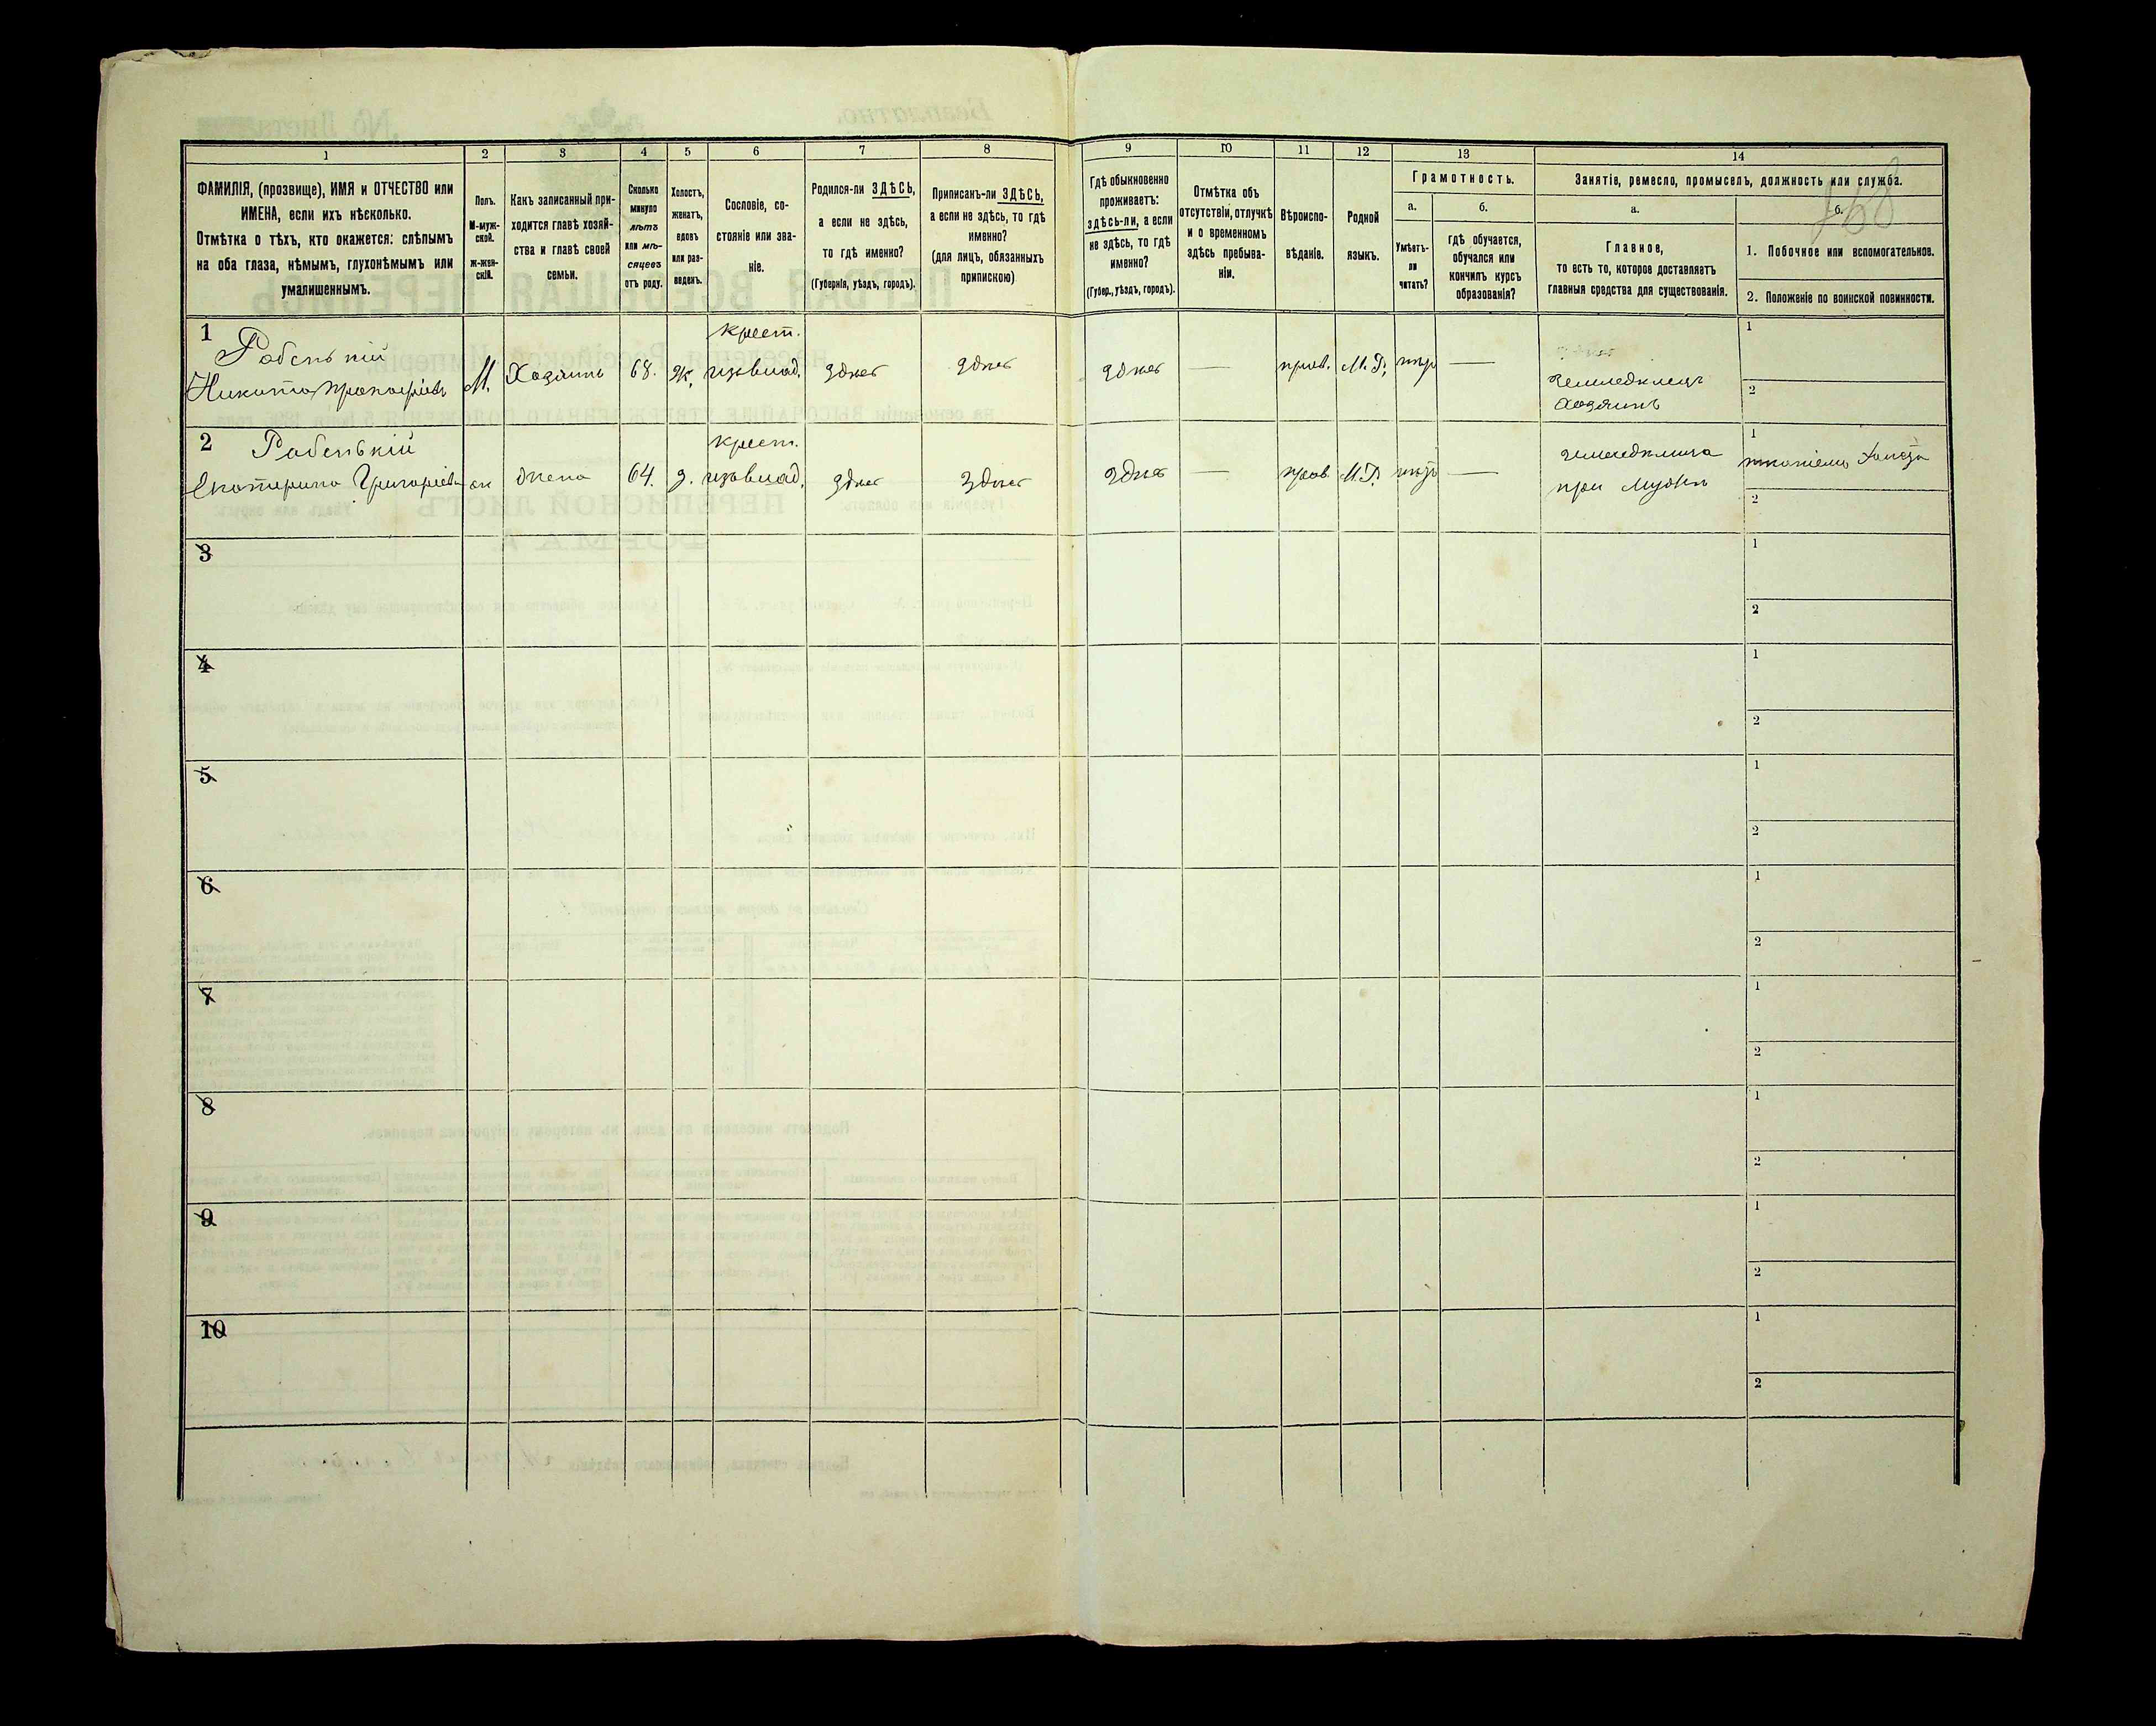 1
2
3
4
5
6
7
8
9
10
11
12
13
14
ФАМИЛІЯ, (прозвище), ИМЯ и ОТЧЕСТВО или
ИМЕНА, если ихъ нѣсколько.
Отмѣтка о тѣхъ, кто окажется: слѣпымъ
на оба глаза, нѣмымъ, глухонѣмымъ или
умалишеннымъ.
Полъ.
М-муж-
ской.
ж-жен-
скій.
Какъ записанный при-
ходится главѣ хозяй-
ства и главѣ своей
семьи.
Сколько
минуло
лѣтъ
или мѣ-
сяцевъ
отъ роду.
Холостъ,
женатъ,
вдовъ
или раз-
веденъ.
Сословіе, со-
стояніе или зва-
ніе.
Родился-ли ЗДѢСЬ,
а если не здѣсь,
то гдѣ именно?
(Губернія, уѣздъ, городъ).
Приписанъ-ли ЗДѢСЬ,
а если не здѣсь, то гдѣ
именно?
(для лицъ, обязанныхъ
припискою)
Гдѣ обыкновенно
проживаетъ:
здѣсь-ли, а если
не здѣсь, то гдѣ
именно?
(Губер., уѣздъ, городъ).
Отмѣтка объ
отсутствіи, отлучкѣ
и о временномъ
здѣсь пребыва-
ніи.
Вѣроиспо-
вѣданіе.
Родной
языкъ.
Грамотность.
а.
Умѣетъ-
ли
читать?
б.
гдѣ обучается,
обучался или
кончилъ курсъ
образованія?
Занятіе, ремесло, промыселъ, должность или служба.
а.
Главное,
то есть то, которое доставляетъ
главныя средства для существованія.
б.
1. Побочное или вспомогательное.
2. Положеніе по воинской повинности.
1
Рабенькій
Никита Прокофіевъ
М.
Хозяинъ
68.
Ж.
крест.
изъ влад.
здѣсь
здѣсь
здѣсь
—
прав.
М. Р.
нѣтъ
—
земледѣлецъ
хозяинъ
1
2
2
Рабенькій
Екатерина Григоріева
ж
жена
64.
з.
крест.
изъ влад.
здѣсь
здѣсь
здѣсь
—
прав.
М. Р.
нѣтъ
—
земледѣлица
при мужѣ
1
2
3
1
2
4
1
2
5
1
2
6
1
2
7
1
2
8
1
2
9
1
2
10
1
2